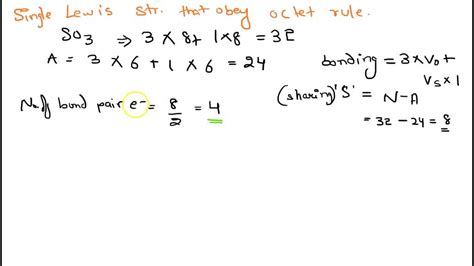 Single Lewis str. that obey octet rule.
SO3 ⇒ 3 × 8 + 1 × 8 = 32
A = 3 × 6 + 1 × 6 = 24
bonding = 3 × Vo +
Vs × 1
(sharing) 'S' = N - A
= 32 - 24 = 8
No. of bond pair e- = 8/2 = 4